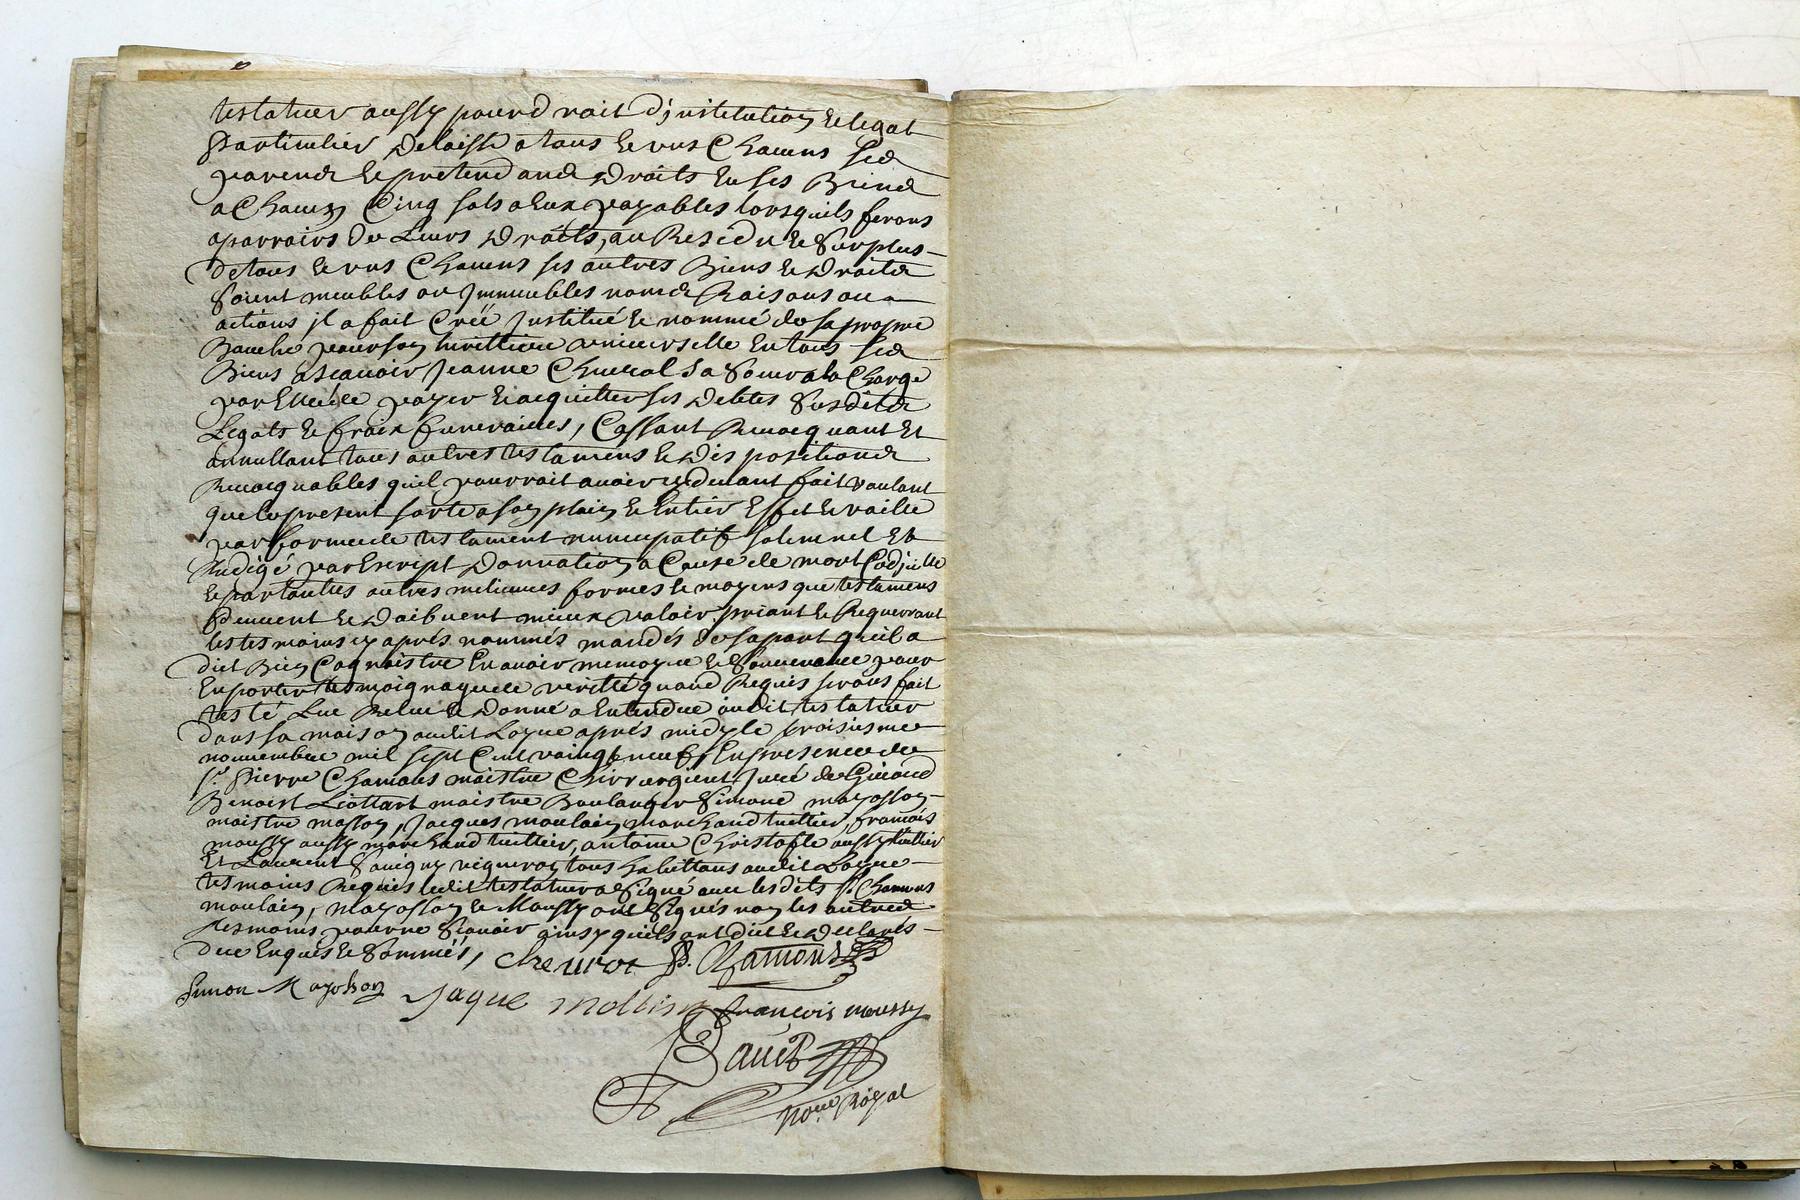 testateur aussy pour droit d'institution et legat
particulier delaissé a tous et uns chacuns ses
parents et pretendands droits en ses biens
a chacun cinq sols a eux payables lorsquils feront
aparroirs de leurs droits, au residu et surplus
de tous et uns chacuns ses autres biens et droits
soient meubles ou immeubles noms raisons ou
actions il a fait creé institué et nommé de sa propre
bouche pour son heritiere universelle en tous ses
biens ascavoir Jeanne sa soeur a la charge
par elle de payer et acquitter ses debtes susdits
legats et fraix funeraires, cassant revocquant et
annullant tous autres testamens et dispositions
revocquables quil pourroit avoir cy devant fait voulant
que le present sorte a son plain et entier effet et vaille
par forme de testament nuncupatif solemnel et
redigé par escript donnation a cause de mort codicille
et par toutes autres meilieures formes et moyens que testamens
peuvent et doibvent mieux valoir priant et requerrant
les tesmoins cy aprés nommés mandés de sa part quil a
dict bien cognoistre en avoir memoyre et souvenance pour
en porter tesmoignage de verité quand requis seront fait
testé Lue relue et donné a entendre audit testateur
dans sa maison audit Loyue aprés midy le troisiesme
novembre mil sept cent vaingt neuf, en presence de
sr. Pierre Chamous maistre chirurgient juré de
Benoist Liottart maistre boulanger Simond mayosson
maistre masson, Jacques moulain marchand tuillier, francois
moussy aussy marchand tuillier, antoine Christofle aussy tuillier
et Laurent vigneron tous habittans audit Loyue
tesmoins requis ledit testateur a signé avec lesdits sr. Chamous
moulain, mayosson et Moussy ont signés non les autres
tesmoins pour ne scavoir ainsy quils ont dict et declarés
due enquis et sommés, P. Chamous
Simon Mayoson Jaque mollin francois moussy

nore. Royal